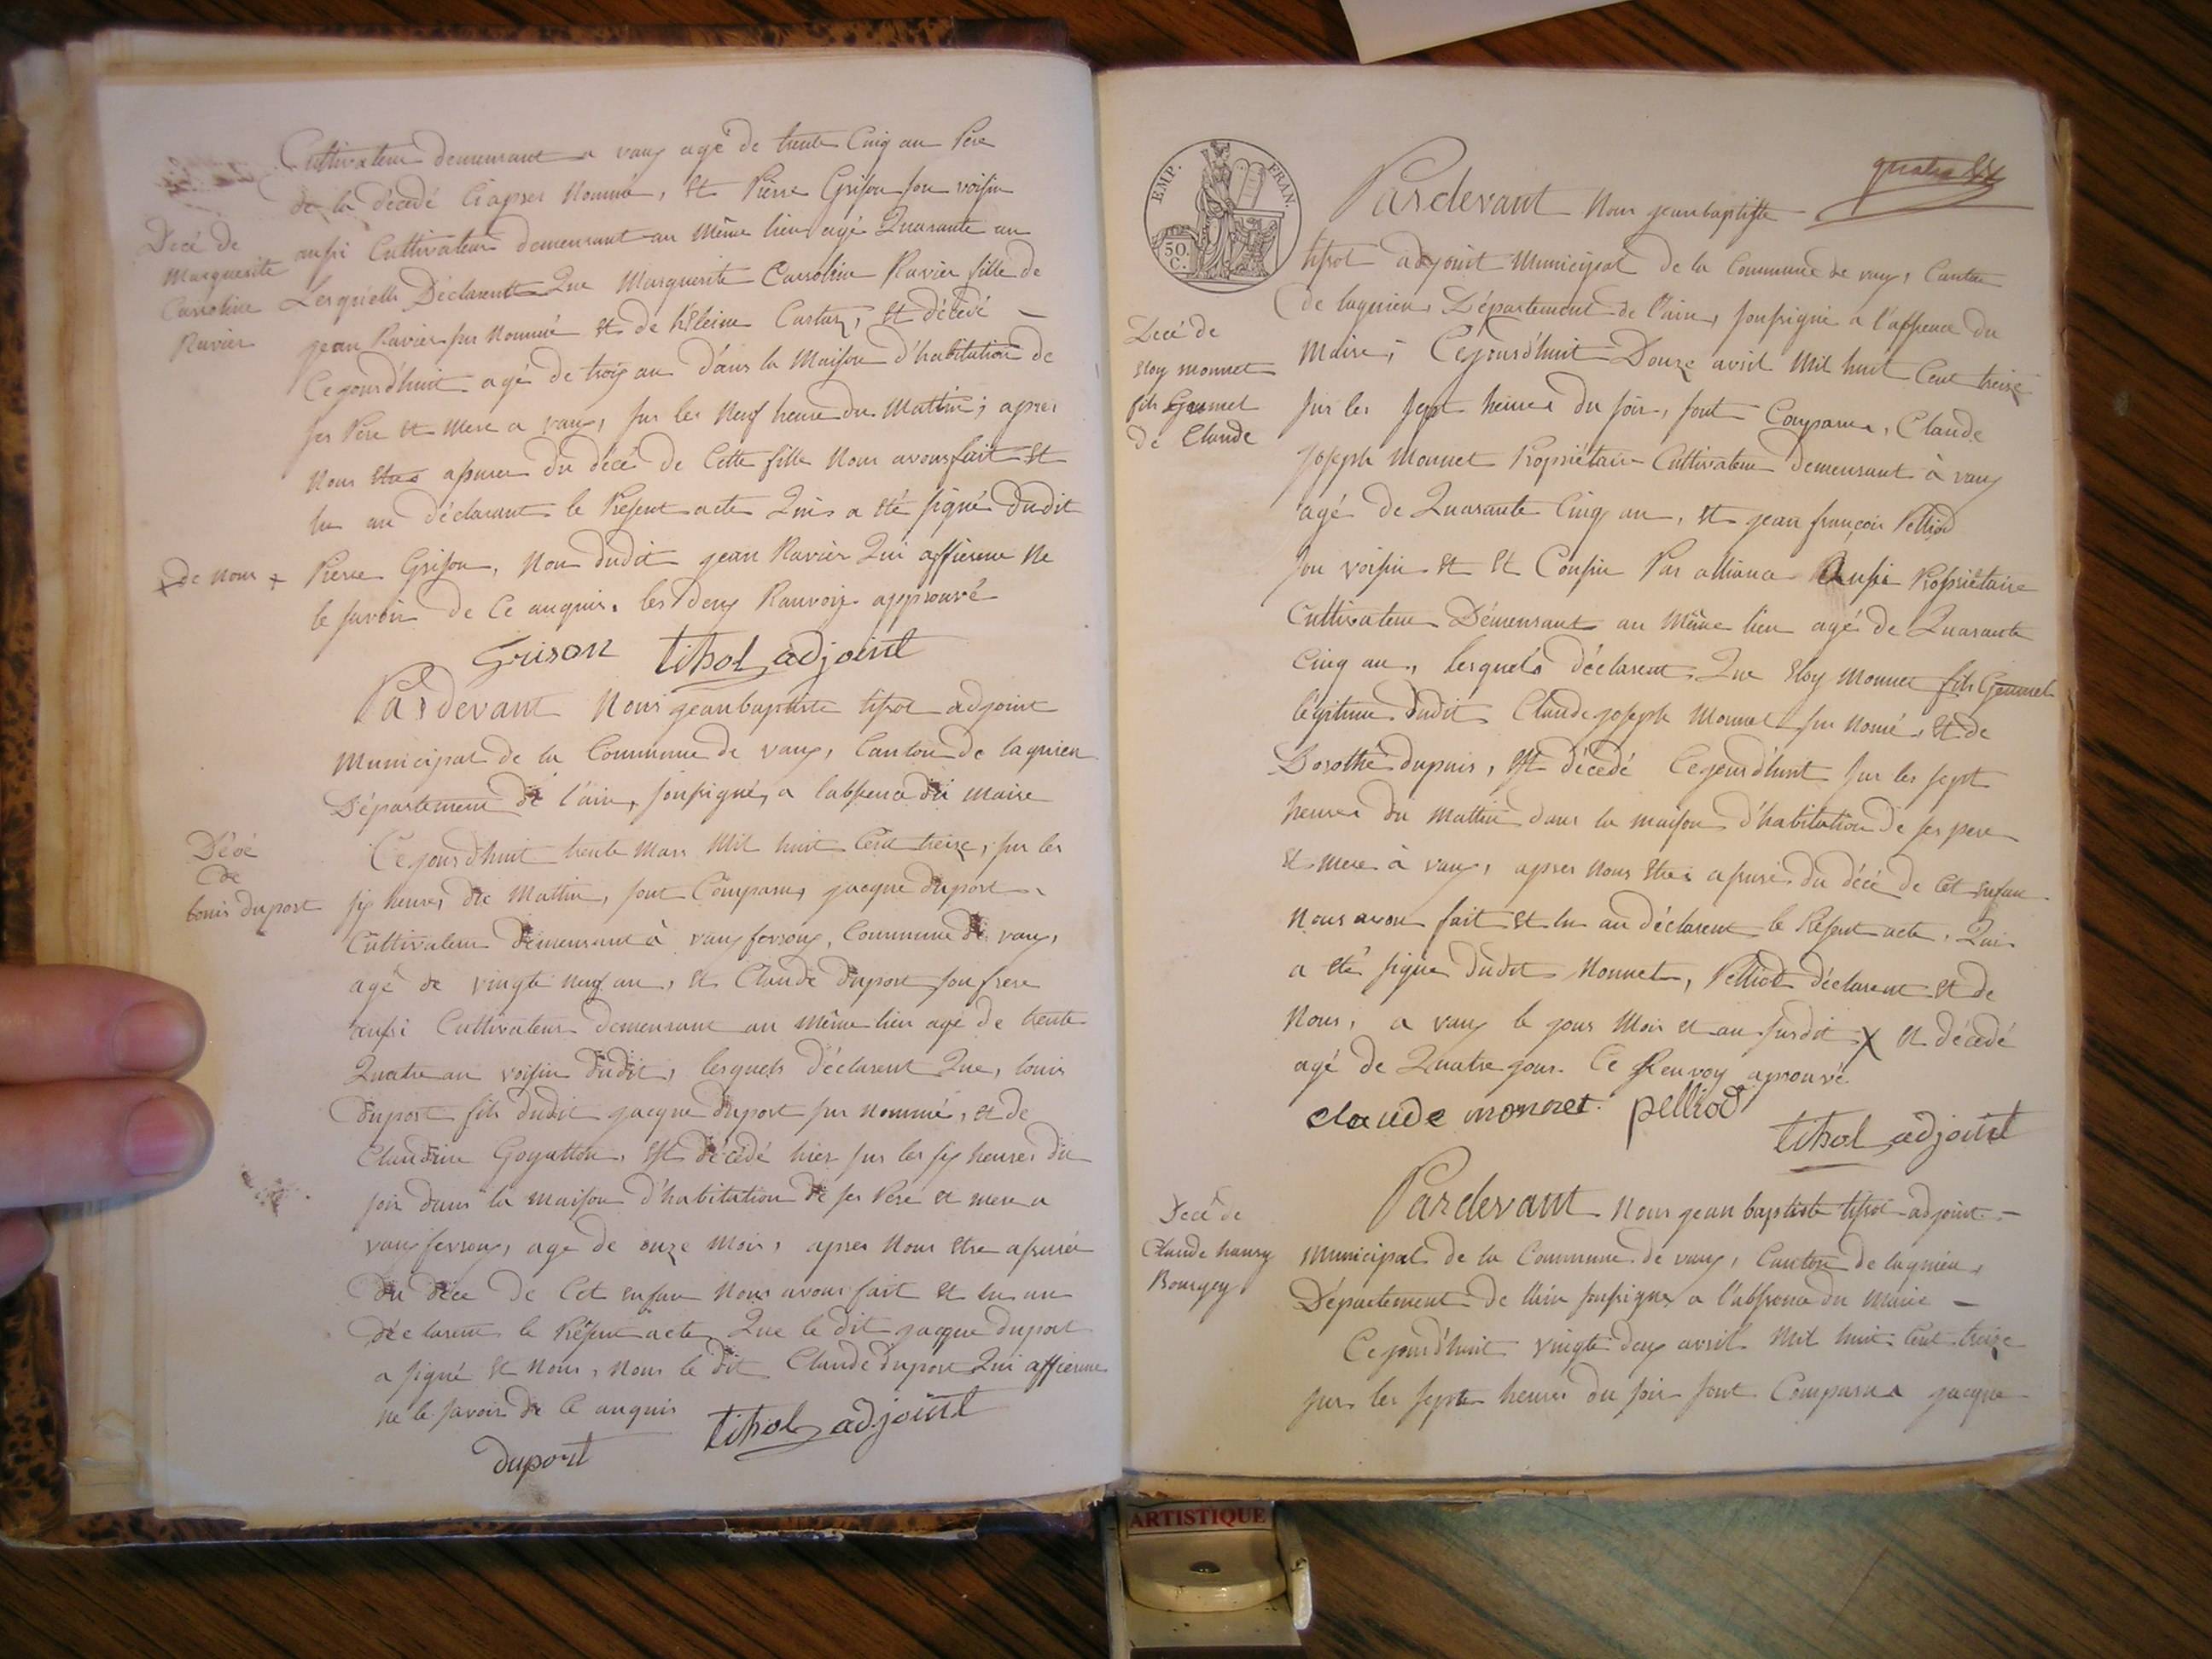 Cultivateur demeurant a vaux agé de trente Cinq an Pere
de la décedé Ciapres Nommé, et Pierre Grison son voisin
Decé de
Marguerite
Carroline
Ravier
aussi Cultivateur demeurant au même lieu agé Quarante an
Lesquells Déclarent Que Marguerite Carroline Ravier fille de
jean Ravier sus Nommé et de héleine Custuz, et décédé
Cejourd'huit agé de trois an dans la Maison d'habitation de
ses Pere et Mere a vaux, sur les Neuf heure du Mattin; apres
Nous etres assurer du décé de Cette fille Nous avons fait et
lu au déclarant le Présent acte Qui a été signé dudit
x de nous x
Pierre Grison, Non dudit jean Ravier Qui affierme Ne
le savoir de Ce anquis. les deux Ranvoix approuvé
Grison tissot adjoint
Pardevant Nous jean baptiste tissot adjoint
Municipal de la Commune de vaux, Canton de lagnieu
Département de l'ain, soussigné, a labsence du maire
Décé
de
louis duport
Cejourd'huit trente Mars Mil huit Cent treize, sur les
six heures du Mattin, sont Comparus jacque duport
Cultivateur demeurant à vaux fevroux, Commune de vaux,
agé de vingte neuf an, et Claude duport son frere
aussi Cultivateur demeurant au même lieu agé de trente
Quatre an voisin dudit, lesquels déclarent Que, louis
duport fils dudit jacque duport sus nommé, et de
Claudine Goyatton, est décédé hier sur les six heures du
soir dans la maison d'habitation de ses Pere et mere a
vaux fevroux, age de onze Mois, apres Nous etre assurée
du déce de Cet enfan Nous avons fait et lu au
déclarent le Présent acte Que le dit jacque duport
a signé et Nous, Nous le dit Claude duport Qui affierme
ne le savoir de Ce anquis
duport tissot adjoint
EMP. FRAN.
50.
C.
Pardevant Nous jean baptiste
tissot adjoint Municipal de la Commune de vaux, Canton
de lagnieu, Département de l'ain, soussigné a l'absence du
Decé de
eloy monnet
fils Gemmel
de Claude
Maire, Cejourd'huit Douze avril Mil huit Cent treize
sur les sept heures du soir, sont Comparus, Claude
joseph Monnet Propriétaire Cultivateur demeurant à vaux
agé de Quarante Cinq an, et jean françois Pelliod
son voisin et et Cousin Par alliance aussi Propriétaire
Cultivateur Démeurant au Même lieu agé de Quarante
Cinq an, lesquels déclarent Que eloy Monnet fils Gemmel
légitime dudit Claude joseph Monnet sus Nomé, et de
Dorothé dupuis, est décédé Cejourd'huit sur les sept
heures du mattin dans la maison d'habitation de ses pere
et mere à vaux, apres Nous etres assuré du décé de Cet enfan
Nous avon fait et lu au déclarent le Présent acte, Qui
a été signé dudit Monnet, Pelliod déclarent et de
Nous, a vaux le jour Mois et an susdit x et décédé
agé de Quatre jour. Ce Renvoy aprouvé
claude monnet. pelliod
tissot adjoint
Pardevant Nous jean baptiste tissot adjoint
Decé de
Claude hanry
Bourgey
Municipal de la Commune de vaux, Canton de lagnieu,
Département de l'ain soussigné a l'absence du Maire
Cejourd'huit vingte deux avril Mil huit Cent treize
sur les septe heures du soir sont Comparus jacque